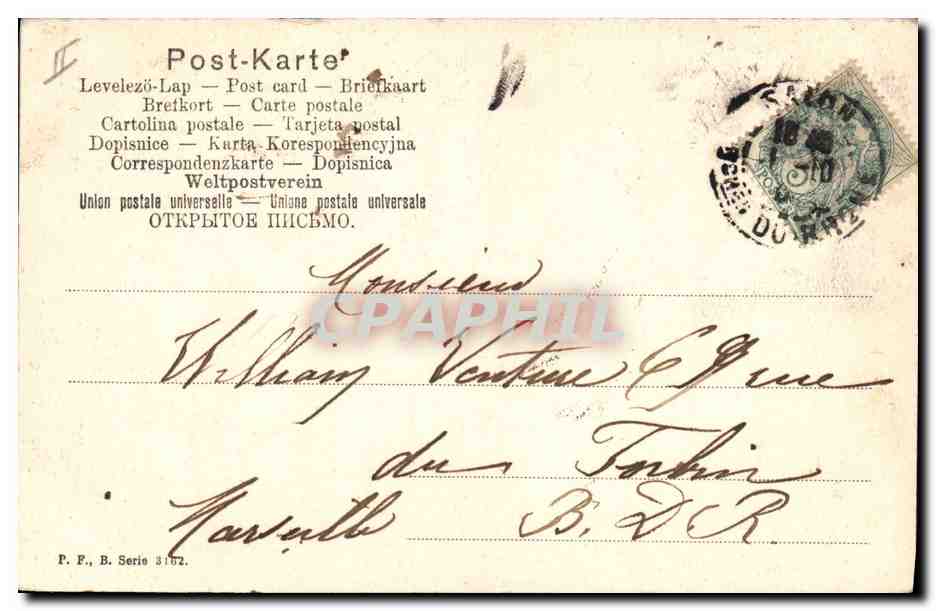 II
Post-Karte
Levelező-Lap — Post card — Briefkaart
Brefkort — Carte postale
Cartolina postale — Tarjeta postal
Dopisnice — Karta Korespondencyjna
Correspondenzkarte — Dopisnica
Weltpostverein
Union postale universelle — Unione postale universale
ОТКРЫТОЕ ПИСЬМО.
SALON
DU-RHONE
5
Monsieur
CPAPHIL
William Venture 69 rue
du Forbin
Marseille B. D R
P. F., B. Serie 3162.